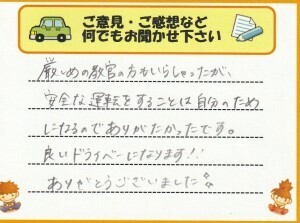 ご意見・ご感想など
何でもお聞かせ下さい
厳しめの教官の方もいらしゃったが、
安全な運転をすることは自分のため
になるのでありがたかったです。
良いドライバーになります!!
ありがとうございました